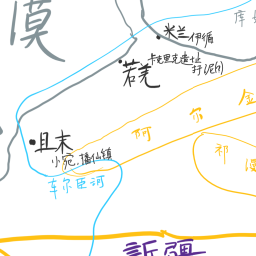 漠
米兰 伊循
库
若羌
卡克里克遗址
扜泥
阿尔金
且末
小宛.播仙镇
车尔臣河
祁漫
新疆